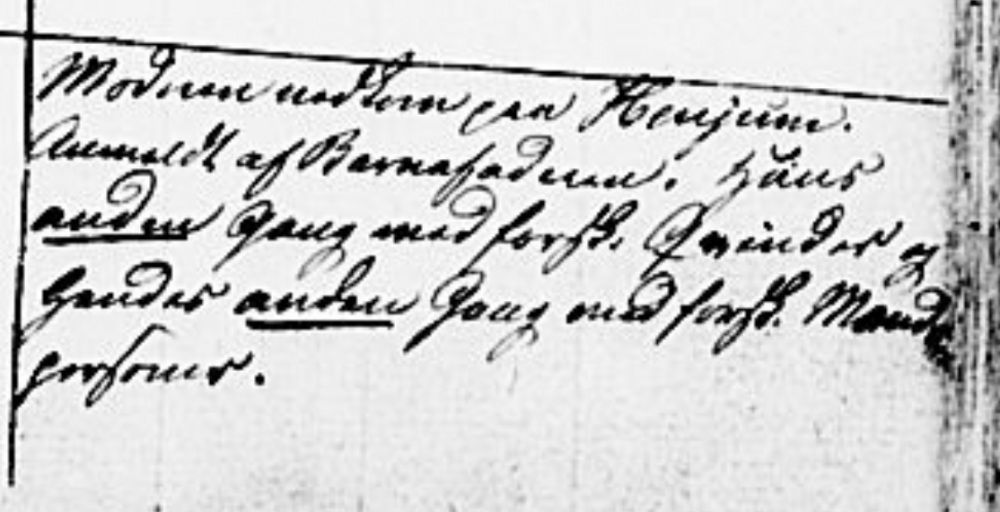 Moderen nedkom paa Henjum.
Anmeldt af Barnefaderen. Hans
anden Gang med forsk. Qvinder og
Hendes anden Gang med forsk. Mands
personer.